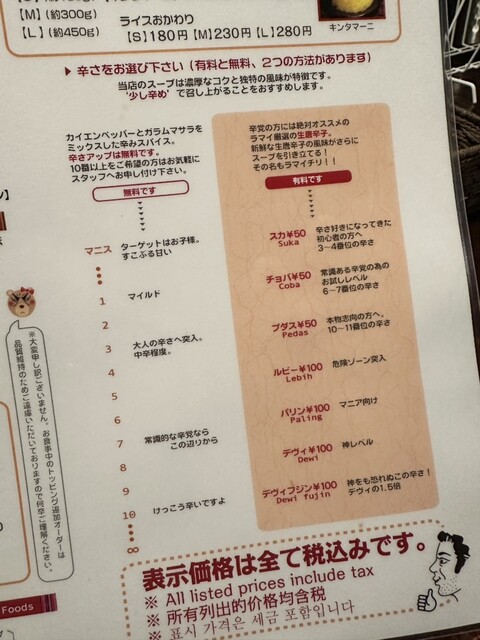 【M】(約300g)
【L】(約450g)
ライスおかわり
【S】180円【M】230円【L】280円
キンタマーニ
辛さをお選び下さい(有料と無料、2つの方法があります)
当店のスープは濃厚なコクと独特の風味が特徴です。
'少し辛め'で召し上がることをおすすめします。
カイエンペッパーとガラムマサラを
ミックスした辛みスパイス。
辛さアップは無料です。
10番以上をご希望の方はお気軽に
スタッフへお申し付け下さい。
無料です
マニス ターゲットはお子様。
すこぶる甘い
1 マイルド
2
3 大人の辛さへ突入。
中辛程度。
4
5
6
7 常識的な辛党なら
この辺りから
8
9
10 けっこう辛いですよ
∞
辛党の方には絶対オススメの
ラマイ厳選の生唐辛子。
新鮮な生唐辛子の風味がさらに
スープを引き立てる!
その名もラマイチリ!!
有料です
スカ¥50 辛さ好きになってきた
Suka 初心者の方へ
3~4番位の辛さ
チョバ¥50 常識ある辛党の為の
Coba お試しレベル
6~7番位の辛さ
プダス¥50 本物志向の方へ。
Pedas 10~11番位の辛さ
ルビー¥100 危険ゾーン突入
Lebih
パリン¥100 マニア向け
Paling
デヴィ¥100 神レベル
Dewi
デヴィフジン¥100 神をも恐れぬこの辛さ!
Dewi fujin デヴィの1.5倍
※大変申し訳ございません。お食事中のトッピング追加オーダーは
品質維持のためご遠慮いただいておりますので何卒ご理解ください。
表示価格は全て税込みです。
※ All listed prices include tax
※ 所有列出的价格均含税
※ 표시 가격은 세금 포함입니다
Foods